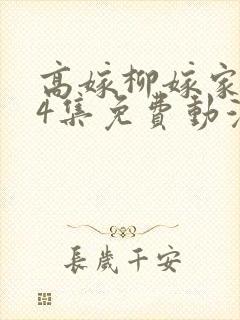 高嫁柳嫁家
4集免費動漫
長歲千安